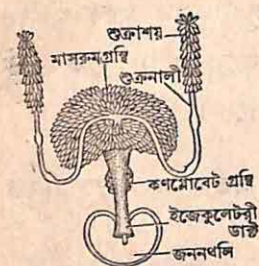 শুক্রাশয়
মাসরুম গ্রন্থি
শুক্রনালী
কণগ্লোবেট গ্রন্থি
ইজেকুলেটরী
ডাক্ট
জননথলি